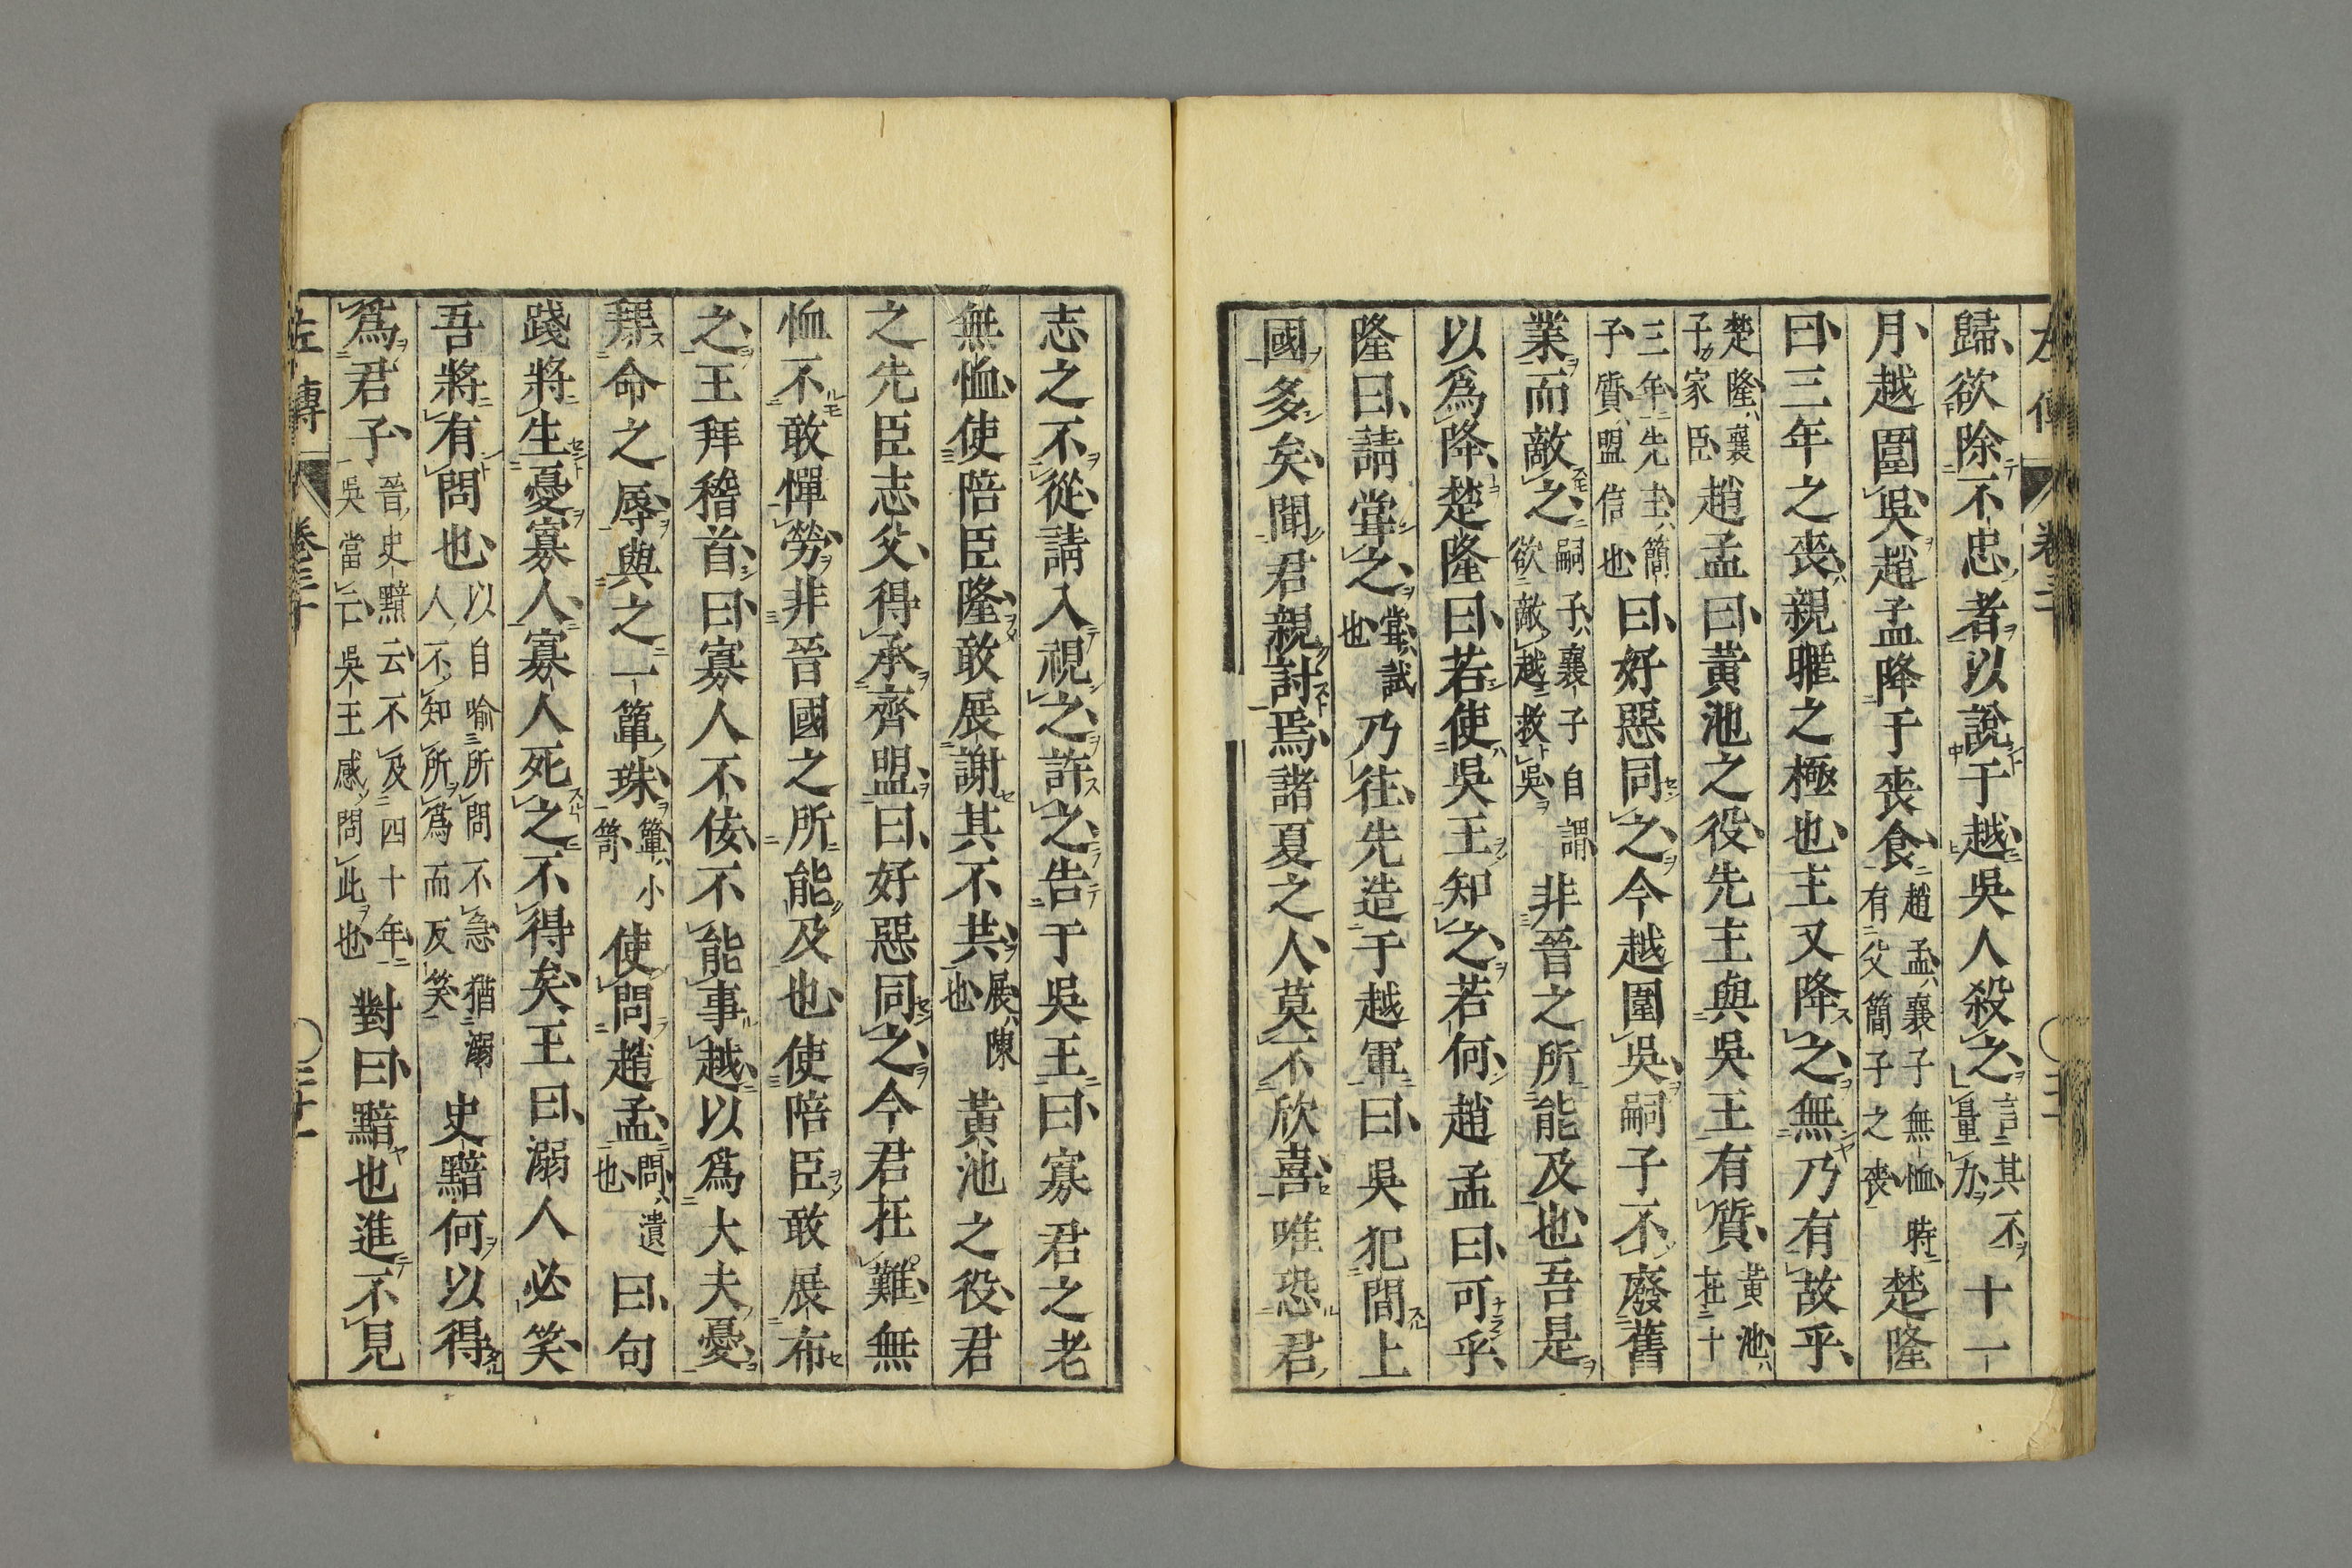 左傳 卷三十
歸欲除不忠者以說于越吳人殺之言其不量力十一
月越圍吳趙孟降于喪食趙孟襄子無恤時有父簡子之喪楚隆
曰三年之喪親暱之極也主又降之無乃有故乎
楚隆襄子家臣趙孟曰黃池之役先主與吳王有質黃池在十
三年先主簡子質盟信也曰好惡同之今越圍吳嗣子不廢舊
業而敵之嗣子襄子自謂欲敵越救吳非晉之所能及也吾是
以爲降楚隆曰若使吳王知之若何趙孟曰可乎
隆曰請嘗之嘗試也乃往先造于越軍曰吳犯間上
國多矣聞君親討焉諸夏之人莫不欣喜唯恐君
志之不從請入視之許之告于吳王曰寡君之老
無恤使陪臣隆敢展謝其不共展陳也黃池之役君
之先臣志父得承齊盟曰好惡同之今君在難無
恤不敢憚勞非晉國之所能及也使陪臣敢展布
之王拜稽首曰寡人不佞不能事越以爲大夫憂
拜命之辱與之一簞珠簞小笥使問趙孟問遺也曰句
踐將生憂寡人寡人死之不得矣王曰溺人必笑
吾將有問也以自喻所問不急猶溺人不知所爲而反笑史黯何以得
爲君子晉史黯云不及四十年吳當亡吳王感問此也對曰黯也進不見
左傳 卷三十 二十一